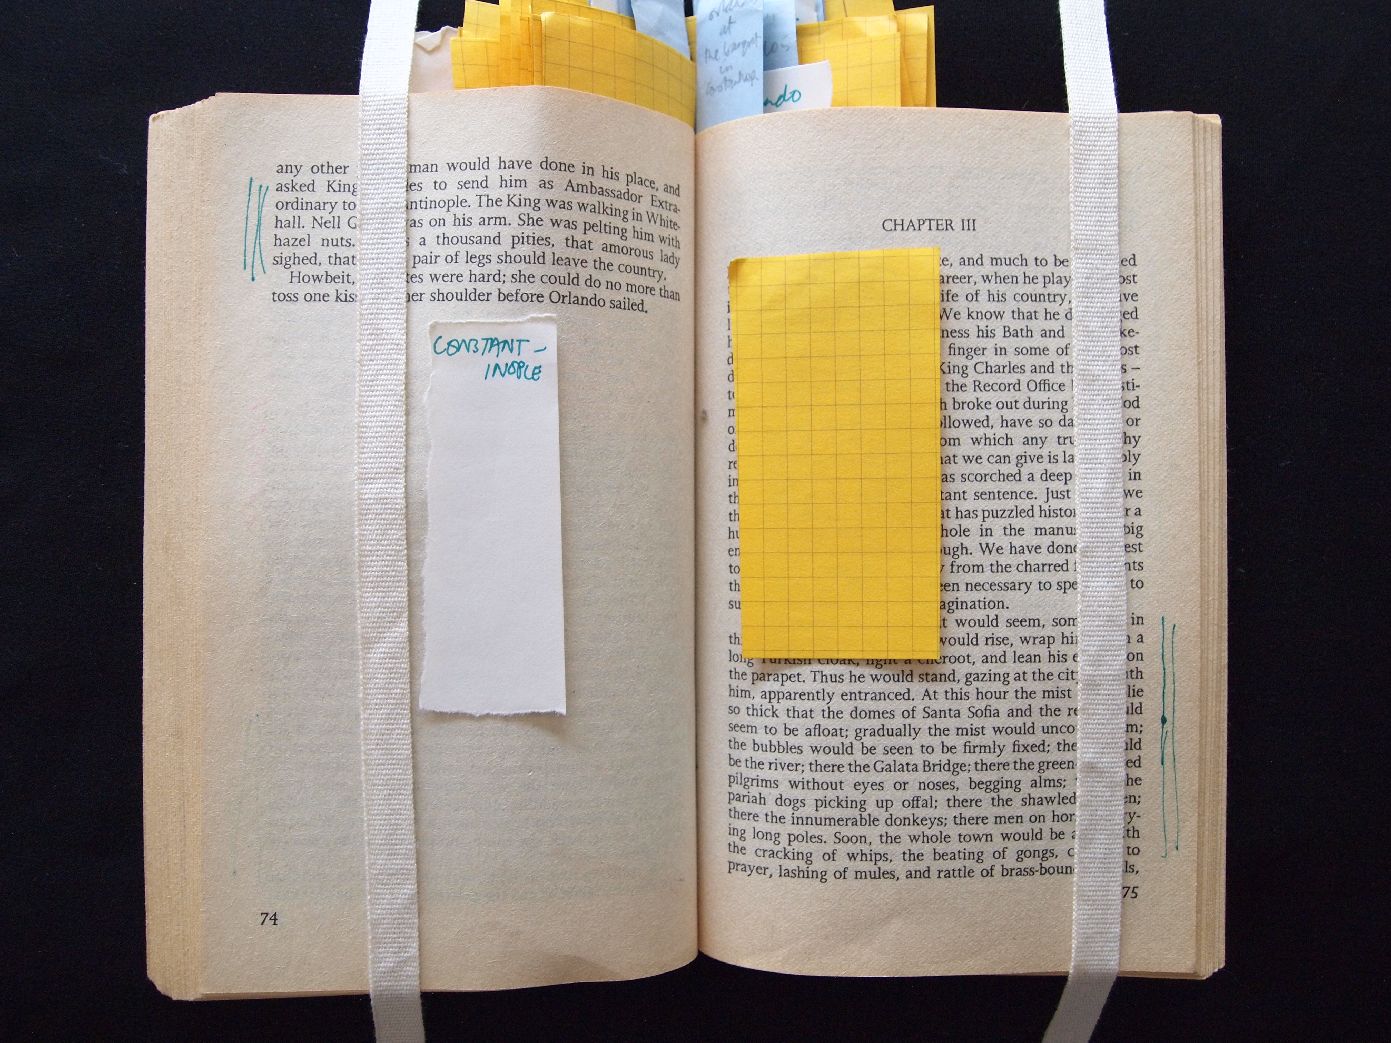 at
the banquet
in
ndo
any other man would have done in his place, and
asked King les to send him as Ambassador Extra-
ordinary to antinople. The King was walking in White-
hall. Nell G was on his arm. She was pelting him with
hazel nuts. s a thousand pities, that amorous lady
sighed, that pair of legs should leave the country.
Howbeit, tes were hard; she could do no more than
toss one kiss her shoulder before Orlando sailed.
CONSTANT –
INOPLE
74
CHAPTER III
e, and much to be ed
areer, when he play ost
ife of his country, ve
We know that he d ged
ness his Bath and ke-
finger in some of ost
King Charles and th s –
the Record Office sti-
h broke out during od
ollowed, have so da or
om which any tru hy
re at we can give is la bly
in as scorched a deep in
th tant sentence. Just we
th at has puzzled histor r a
hu hole in the manus big
en ough. We have done est
to y from the charred nts
th een necessary to spe to
su agination.
t would seem, som in
th would rise, wrap hi n a
long Turkish cloak, light a cheroot, and lean his e on
the parapet. Thus he would stand, gazing at the city th
him, apparently entranced. At this hour the mist lie
so thick that the domes of Santa Sofia and the re uld
seem to be afloat; gradually the mist would unco m;
the bubbles would be seen to be firmly fixed; the uld
be the river; there the Galata Bridge; there the green- ed
pilgrims without eyes or noses, begging alms; he
pariah dogs picking up offal; there the shawled en;
there the innumerable donkeys; there men on hor ry-
ing long poles. Soon, the whole town would be a th
the cracking of whips, the beating of gongs, c to
prayer, lashing of mules, and rattle of brass-boun ls,
75